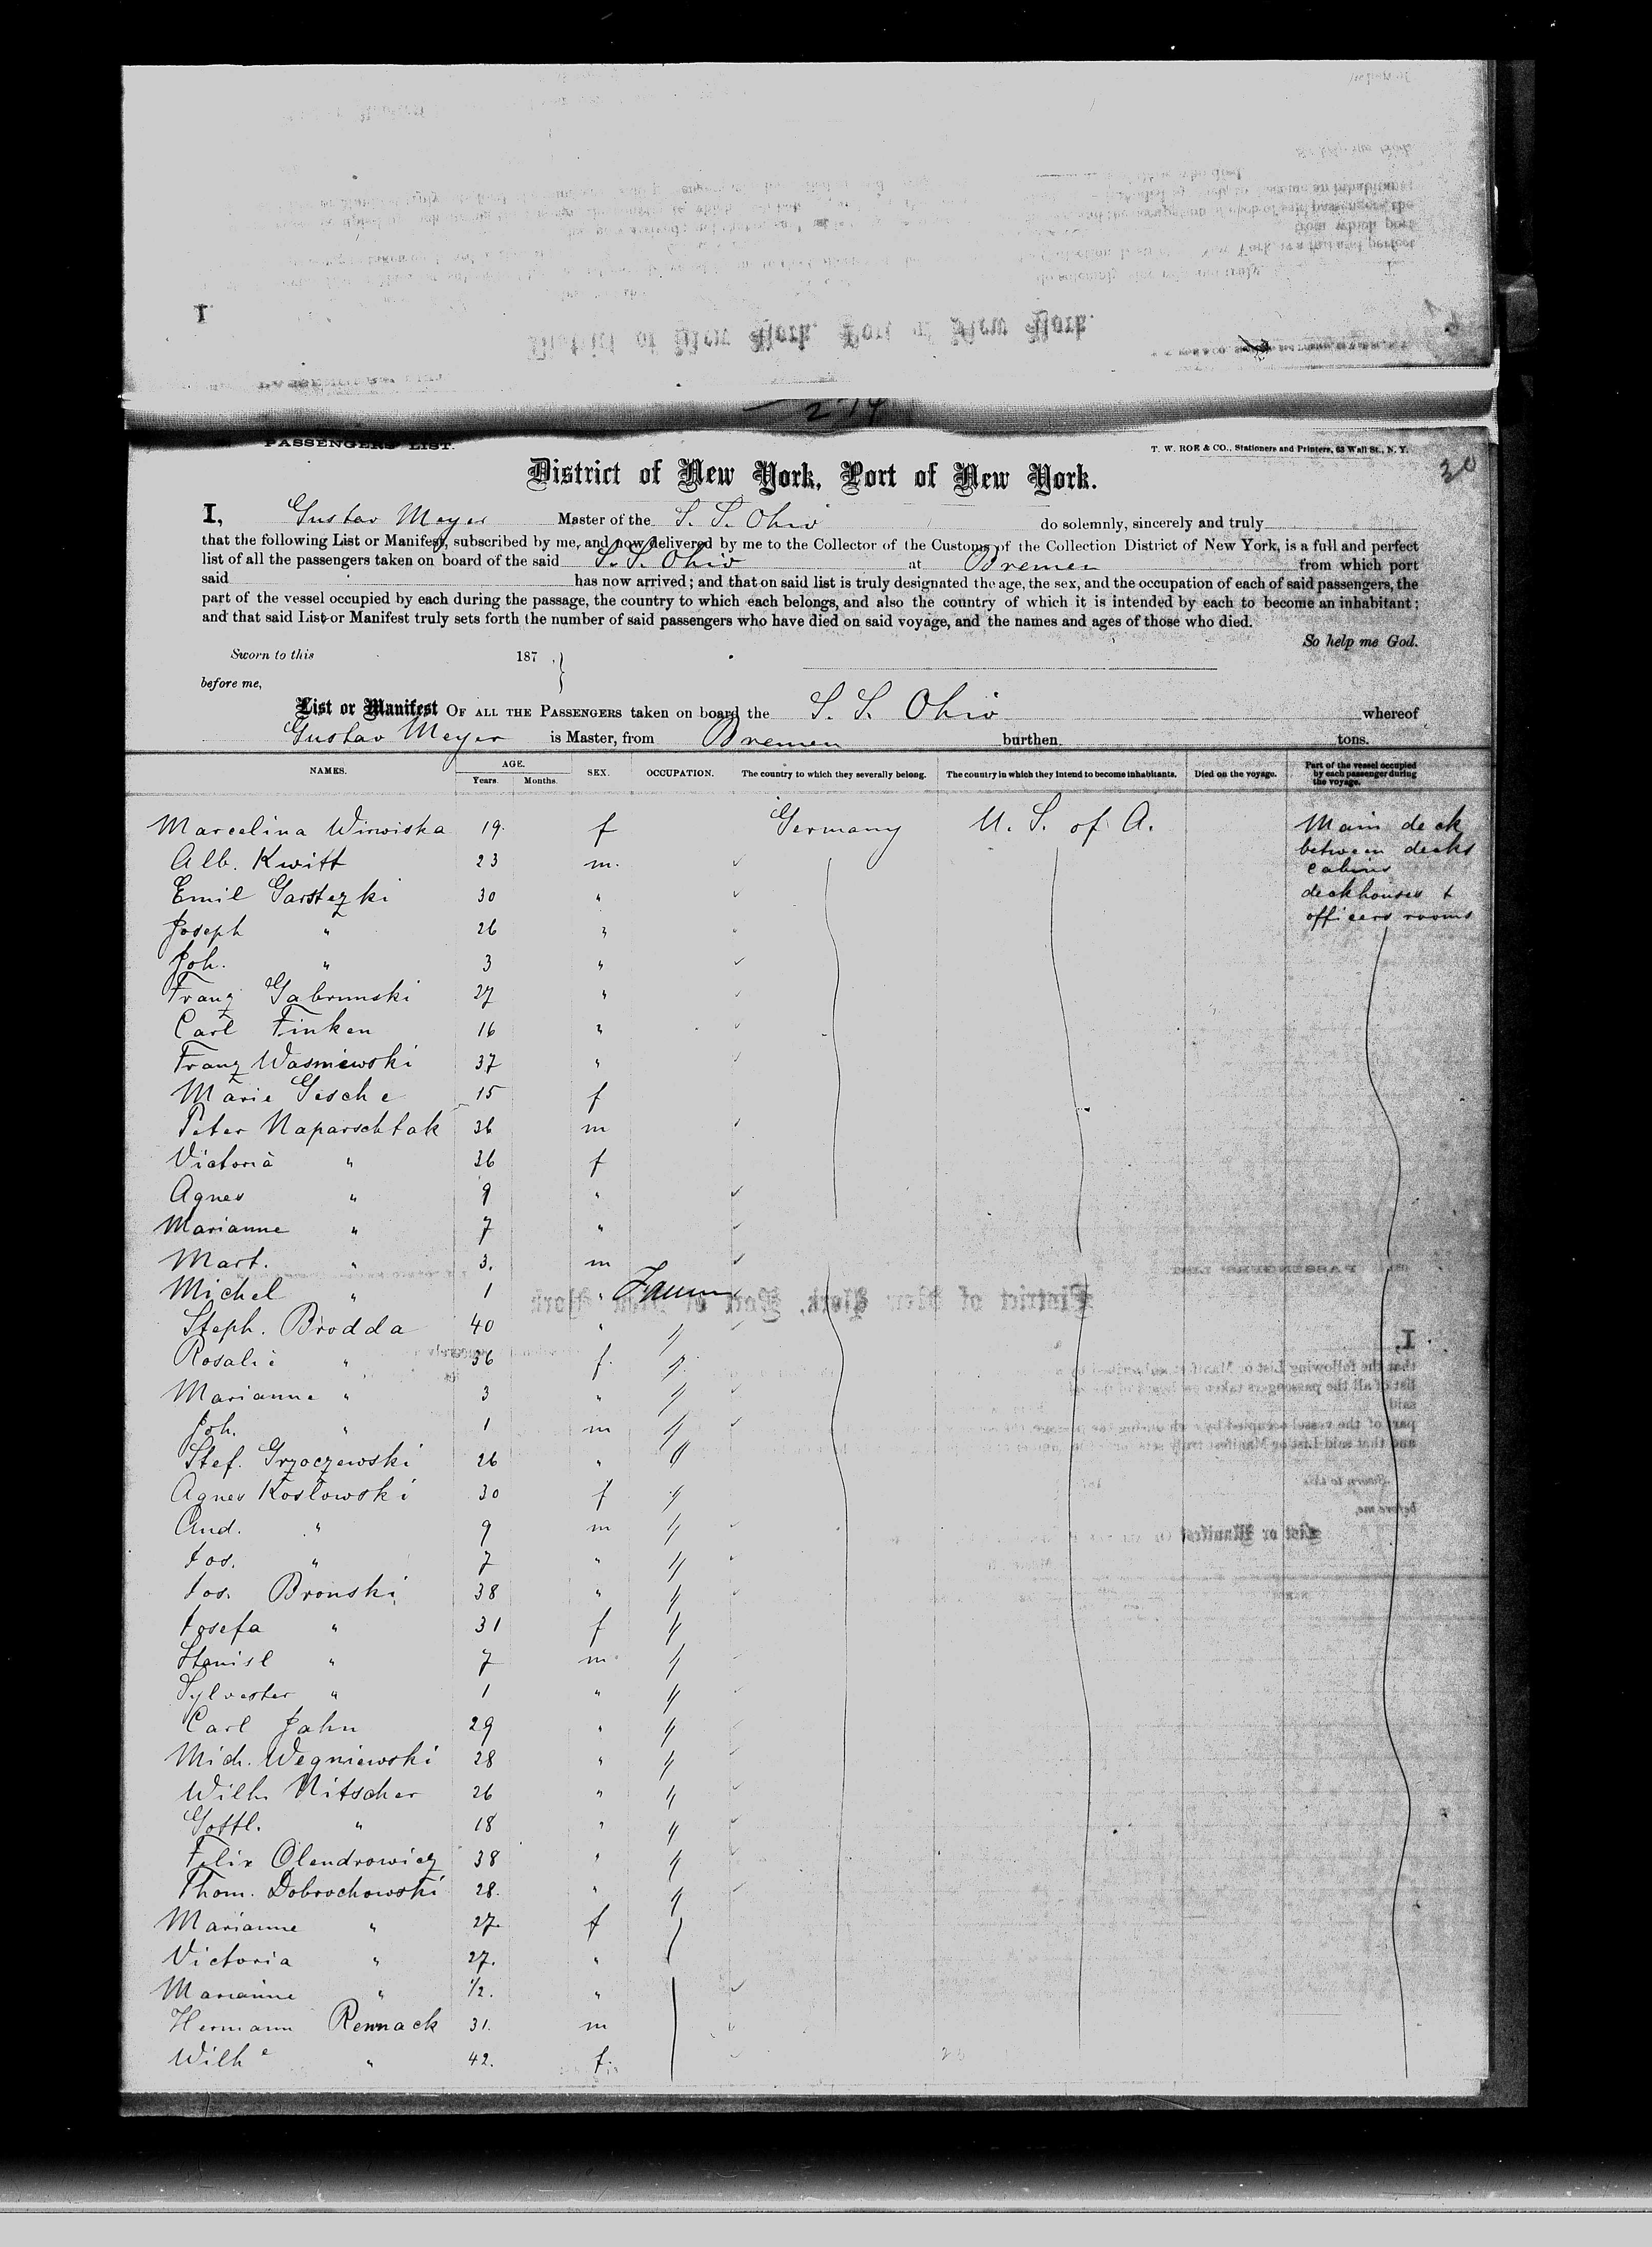 274
PASSENGERS' LIST.
T. W. ROE & CO., Stationers and Printers, 63 Wall St., N. Y.
30
District of New York, Port of New York.
I, Gustav Meyer Master of the S. S. Ohio do solemnly, sincerely and truly
that the following List or Manifest, subscribed by me, and now delivered by me to the Collector of the Customs of the Collection District of New York, is a full and perfect
list of all the passengers taken on board of the said S. S. Ohio at Bremen from which port
said has now arrived; and that on said list is truly designated the age, the sex, and the occupation of each of said passengers, the
part of the vessel occupied by each during the passage, the country to which each belongs, and also the country of which it is intended by each to become an inhabitant;
and that said List or Manifest truly sets forth the number of said passengers who have died on said voyage, and the names and ages of those who died.
So help me God.
Sworn to this 187
before me,
List or Manifest OF ALL THE PASSENGERS taken on board the S. S. Ohio whereof
Gustav Meyer is Master, from Bremen burthen tons.
NAMES. AGE. Years. Months. SEX. OCCUPATION. The country to which they severally belong. The country in which they intend to become inhabitants. Died on the voyage. Part of the vessel occupied by each passenger during the voyage.
Marcelina Wirwiska 19. f Germany U. S. of A. Main deck
between decks
cabins
deckhouses &
officers rooms
Alb. Kwitt 23 m.
Emil Garstezki 30 "
Joseph " 26 "
Joh. " 3 "
Franz Gabrunski 27 "
Carl Finken 16 "
Franz Wasniewski 37 "
Marie Gesche 15 f
Peter Naparschtak 36 m
Victoria " 36 f
Agnes " 9 "
Marianne " 7 "
Mart. " 3. m
Michel " 1 "
Steph. Brodda 40 " "
Rosalie " 36 f. "
Marianne " 3 " "
Joh. " 1 m "
Stef. Grzoczewski 26 " "
Agnes Koslowski 30 f "
And. " 9 m "
Jos. " 7 " "
Jos. Bronski 38 " "
Josefa " 31 f "
Stanisl " 7 m "
Sylvester " 1 " "
Carl Jahn 29 " "
Mich. Wegniewski 28 " "
Wilh. Nitscher 26 " "
Gottl. " 18 " "
Felix Olendrowicz 38 " "
Thom. Dobrochowski 28. " "
Marianne " 27. f
Victoria " 27. "
Marianne " 1/2. "
Hermann Rennack 31. m
Wilhe " 42. f.